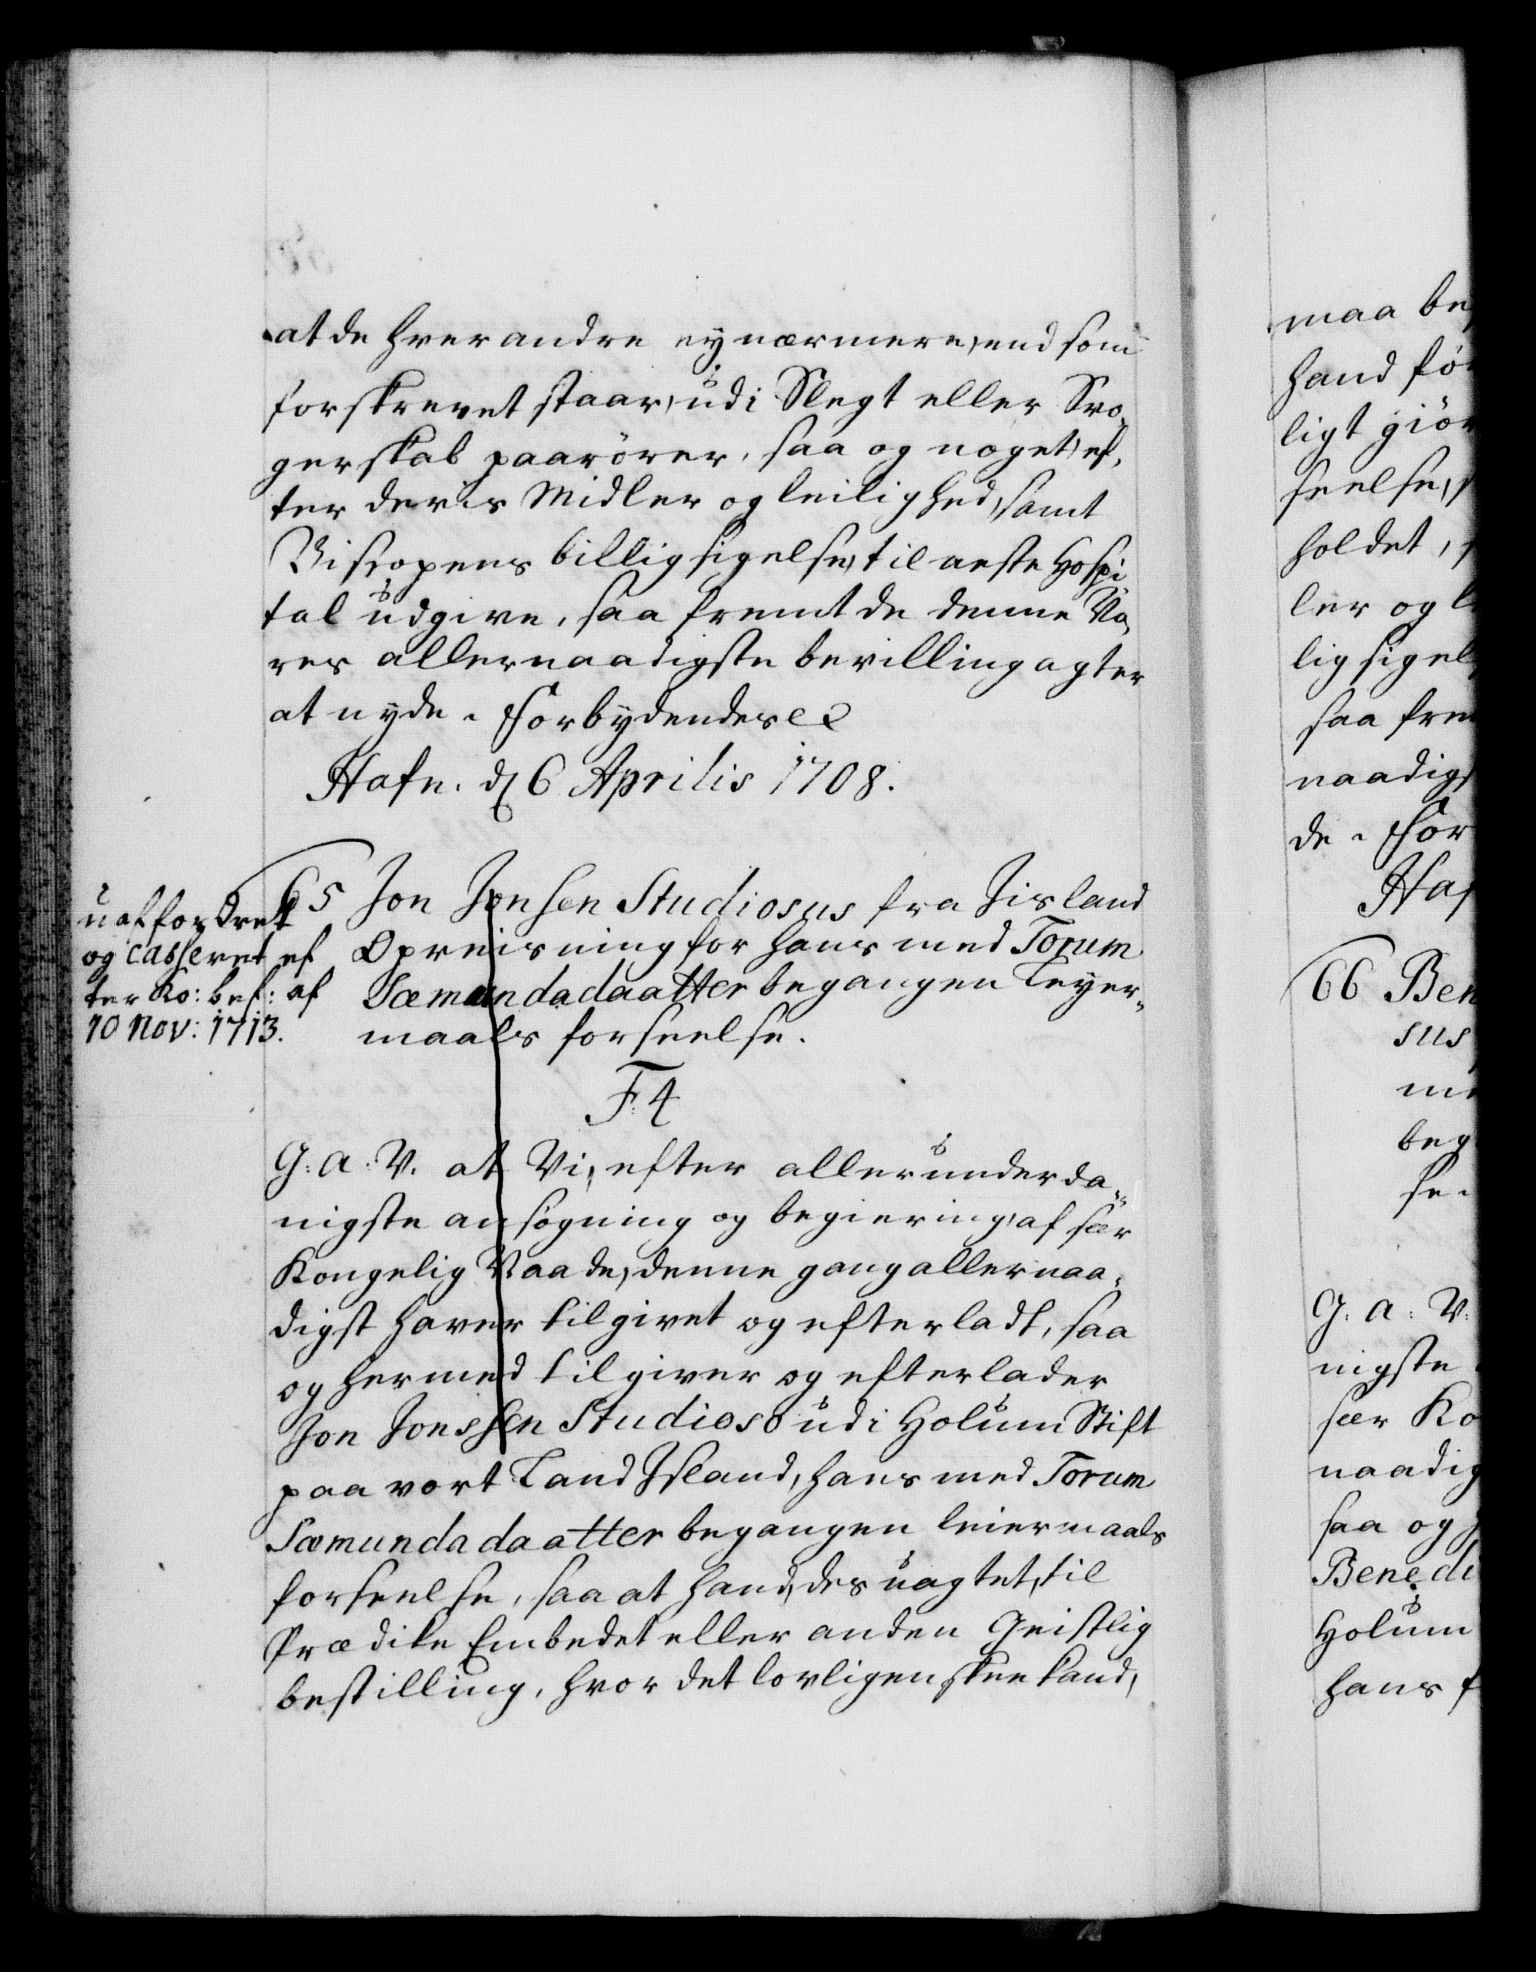 at de hverandre ey nærmere, end som
forskrevet staar, udi Slegt eller Svo-
gerskab paarörer, saa og noget, ef-
ter deris Midler og leilighed, samt
Biscopens billigsigelse, til neste Hospi
tal udgive, saa fremt de denne Vo-
res allernaadigste bevilling agter
at nyde. Forbydendes ec
Hafn. d 6 Aprilis 1708.
uaffordret
og casseret ef
ter Ko: bef: af
10 Nov: 1713.
65 Jon Jonsen Studiosus fra Jisland
Opreisning for hans med Torum
Sæmundadaatter begangen Leyer-
maals forseelse.
F. 4
G: a: V. at Vi, efter allerunderda-
nigste ansøgning og begiering, af sær
Kongelig Naade, denne gang allernaa-
digst haver tilgivet og efterladt, saa
og hermed tilgiver og efterlader
Jon Jonssen Studioso udi Holum Stift
paa vort Land Island, hans med Torum
Sæmundadaatter begangen leiermaals
forseelse, saa at hand, des uagtet, til
Prædike Embedet eller anden Geistlig
bestilling, hvor det lovligen skee kand,
maa be
hand fø
ligt giör
seelse,
holdet,
ler og l
ligsigel
saa frem
naadigs
de. For
Haf
66 Ben
sus
me
beg
se.
G: a: V:
nigste
sær Ko
naadig
saa og
Benedi
Holum
hans f